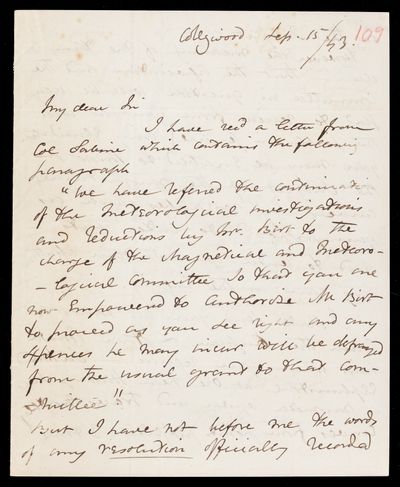 Collingwood Sep. 15/43. 109
My dear Sir
I have recd a letter from
Col Sabine which contains the following
paragraph
"We have referred the continuation
of the Meteorological investigations
and reductions by Mr. Birt to the
charge of the Magnetical and Meteoro-
-logical Committee so that you are
now Empowered to authorize Mr Birt
to proceed as you see right and any
expenses he may incur will be defrayed
from the usual grant to that com-
mittee"
But I have not before me the words
of any resolution officially recorded